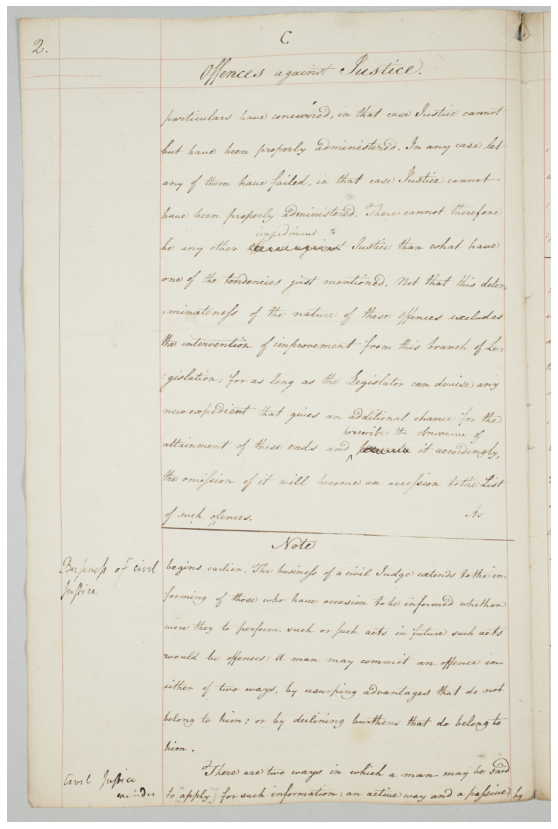 2.
C
Offences against Justice.
particulars have concurred, in that case Justice cannot
but have been properly administered. In any case let
any of them have failed, in that case Justice cannot
have been properly administered. There cannot therefore
impediment to
be any other Justice than what have
one of the tendencies just mentioned. Not that this deter
:minateness of the nature of these offences excludes
the intervention of improvement from this branch of Le:
:gislation: for as long as the Legislator can devise any
new expedient that gives an additional chance for the
prescribes the observance of
attainment of these ends and it accordingly,
the omission of it will become an accession to the List
of such offences.
As
Note
Business of civil
Justice
begins earlier. The business of a civil Judge extends to the in:
forming of those who have occasion to be informed whether
were they to perform such or such acts in future such acts
would be offences: A man may commit an offence in
either of two ways, by usurping advantages that do not
belong to him; or by declining burthens that do belong to
him.
There are two ways in which a man may be said
Civil Justice
to apply for such information: an active way and a passive: by